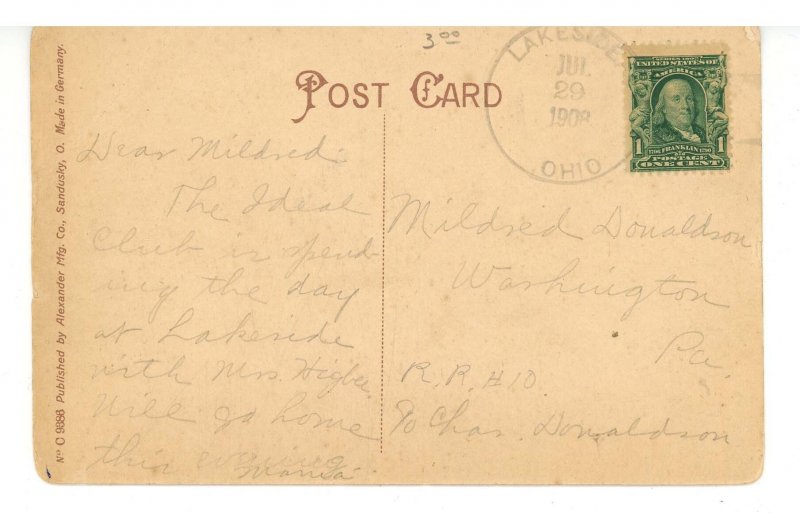 3.00
POST CARD
LAKESIDE
JUL
29
1908
OHIO
SERIES 1902
UNITED STATES OF
AMERICA
1 1706 FRANKLIN 1790 1
POSTAGE
ONE CENT
Dear Mildred:
The Ideal
Club is spend-
ing the day
at Lakeside
with Mrs Higbee.
Will go home
this evening
Mama
Mildred Donaldson
Washington
Pa.
R. R. #10.
% Chas. Donaldson
No C 9386 Published by Alexander Mfg. Co., Sandusky, O. Made in Germany.